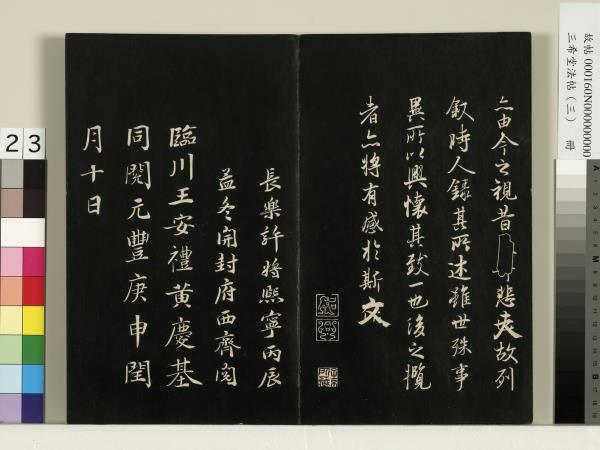 亦由今之視昔悲夫故列
敘時人錄其所述雖世殊事
異所以興懷其致一也後之攬
者亦將有感於斯文
長樂許將熙寧丙辰
孟冬開封府西齋閱
臨川王安禮黃慶基
同閱元豐庚申閏
月十日
故帖 000160N000000000
三希堂法帖(三) 冊
23
A
M
B